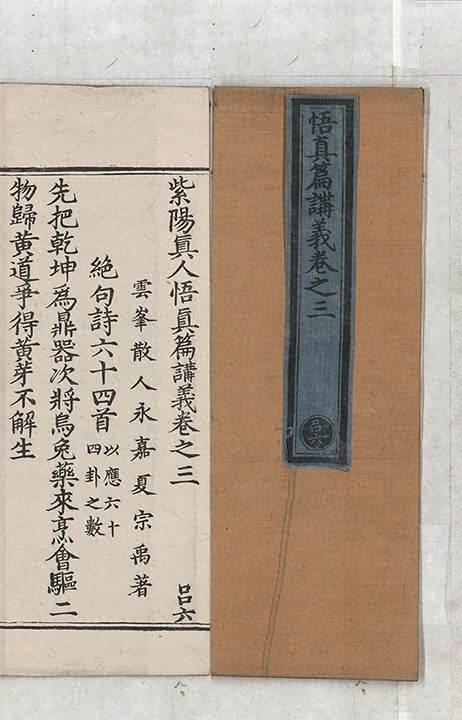 悟真篇講義卷之三
吕六
紫陽真人悟真篇講義卷之三
吕六
雲峯散人永嘉夏宗禹著
絶句詩六十四首以應六十
四卦之數
先把乾坤爲鼎器次將烏兔藥來烹㑹驅二
物歸黃道爭得黃芽不解生